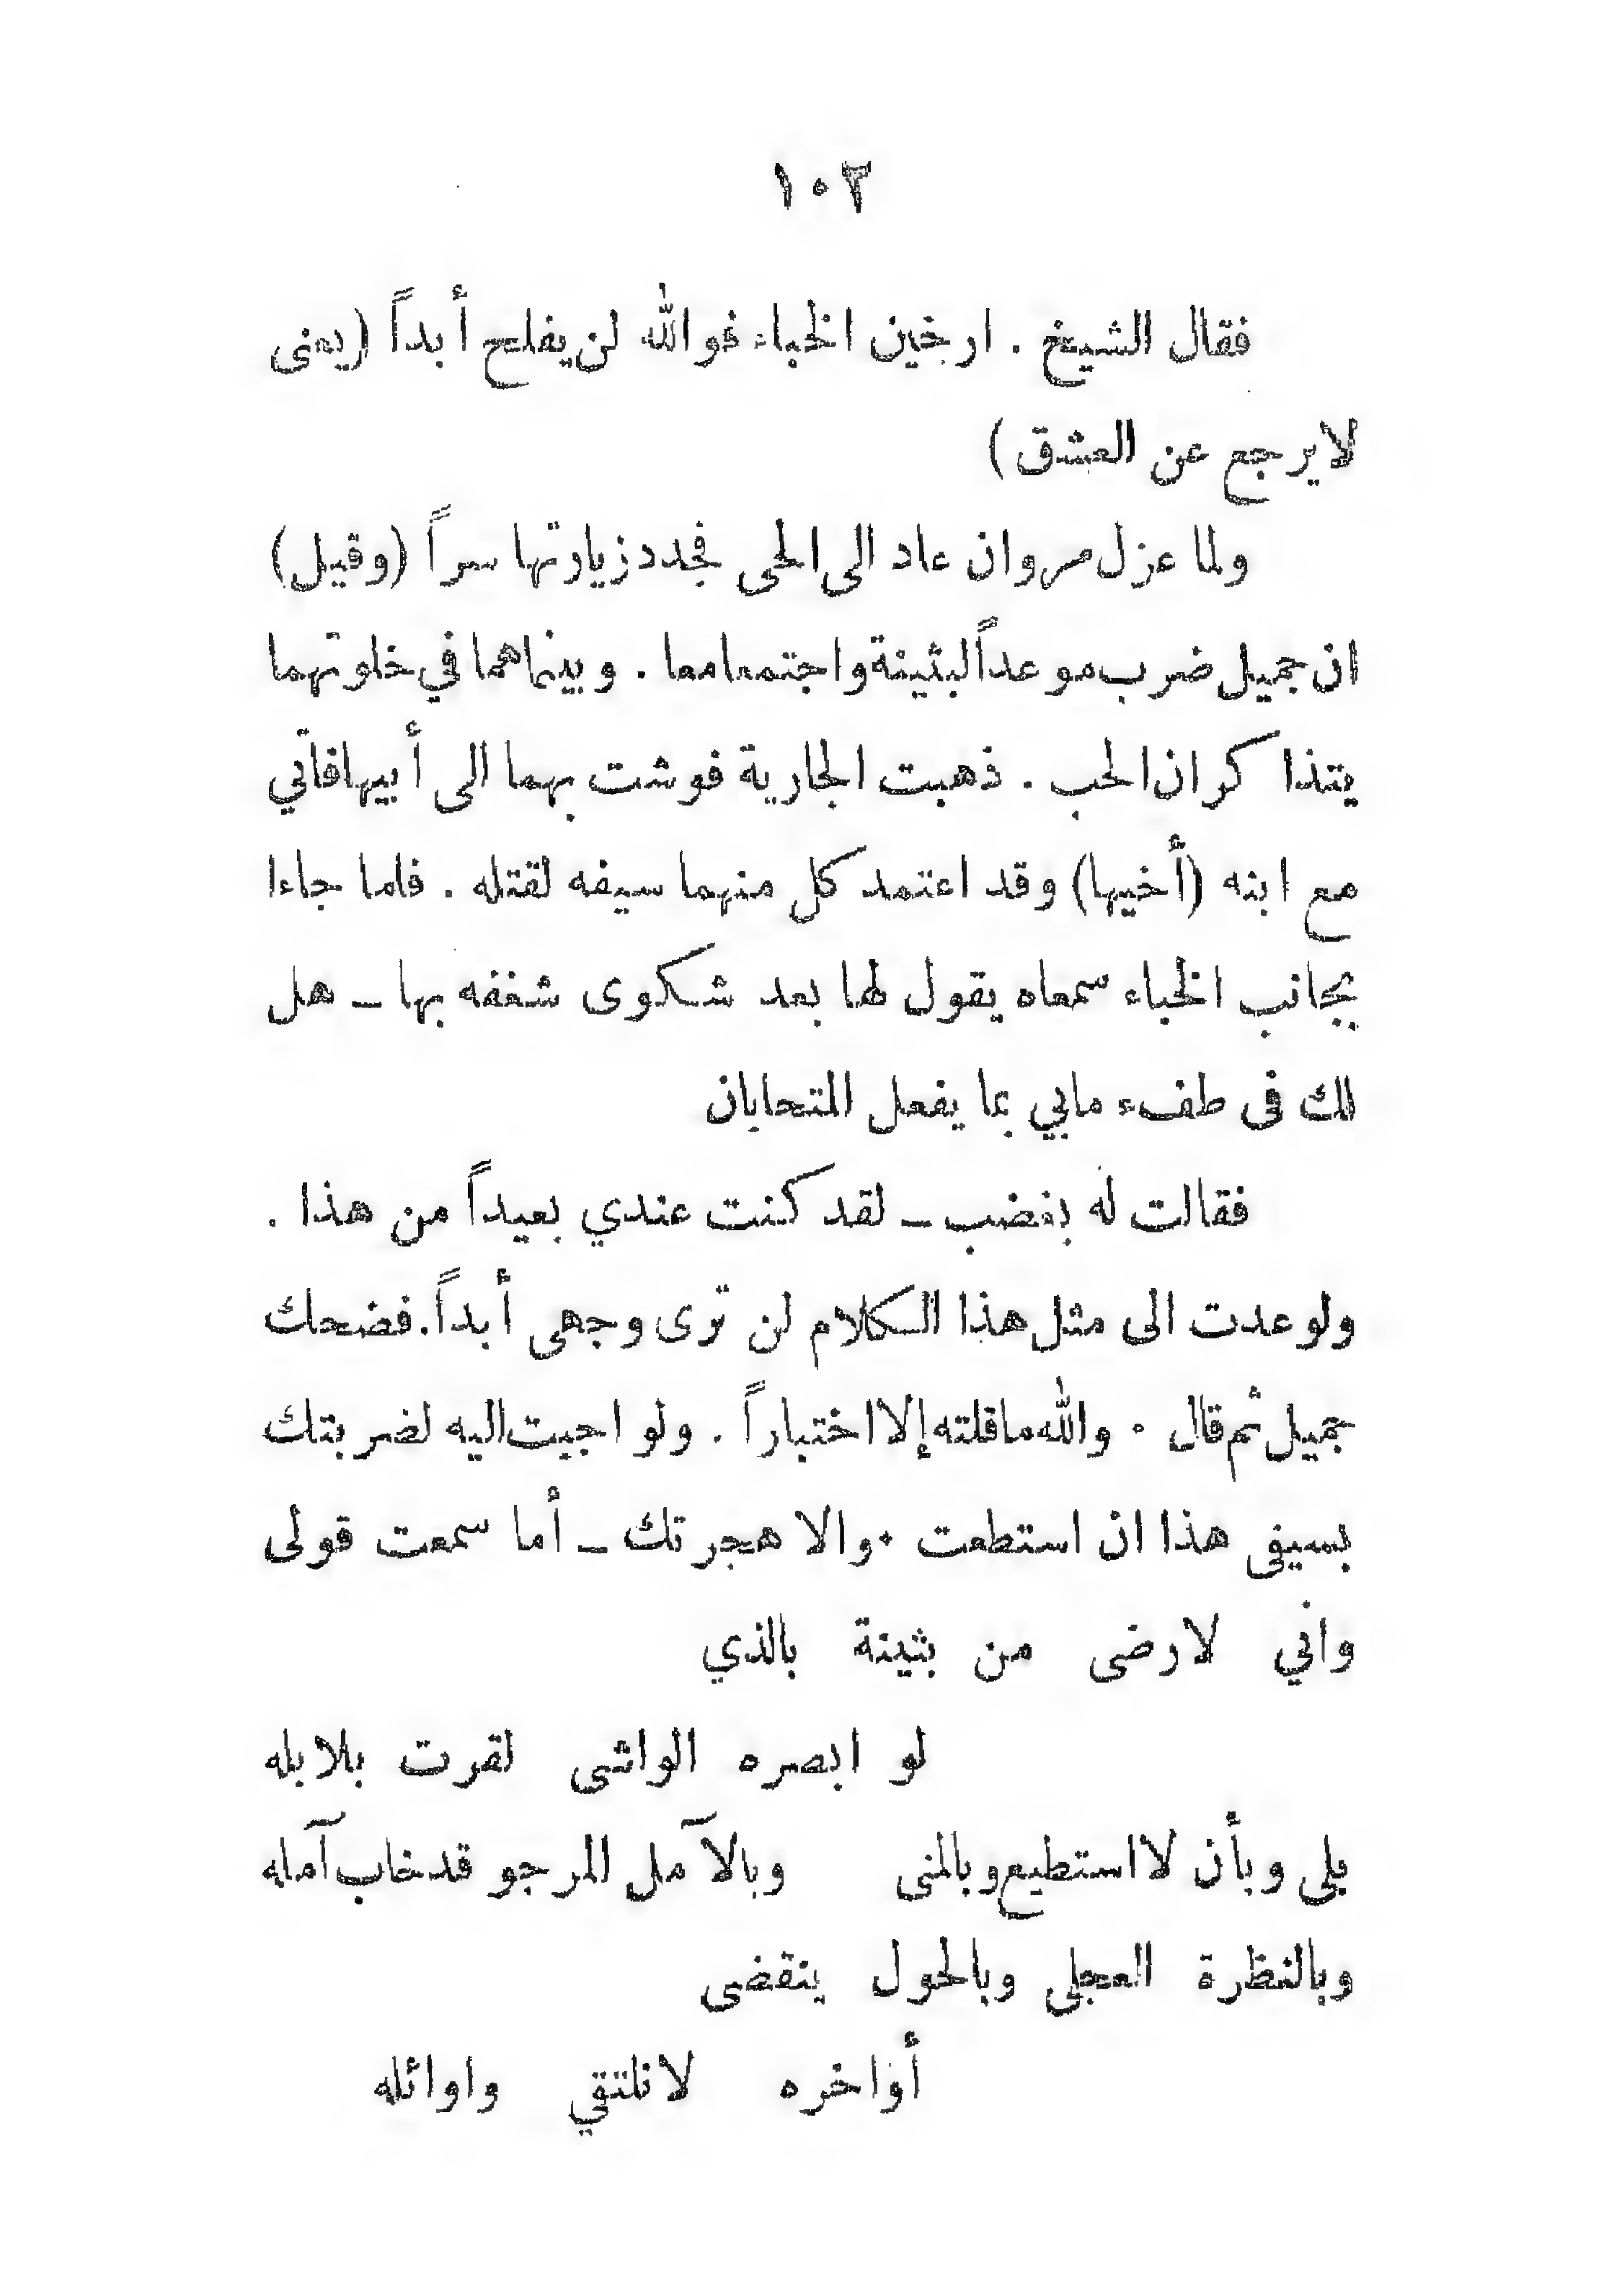 ١٠٣
فقال الشيخ . ارخين الخباء فوالله لن يفلح أبداً (يعنى
لا يرجع عن العشق )
ولما عزل مروان عاد الى الحى فجدد زيارتها سراً (وقيل)
ان جميل ضرب موعداً لبثينة واجتمعا معا . وبينما هما في خلوتهما
يتذا كران الحب . ذهبت الجارية فوشت بهما الى أبيها فأتي
مع ابنه (أخيها) وقد اعتمد كل منهما سيفه لقتله . فلما جاءا
بجانب الخباء سمعاه يقول لها بعد شكوى شغفه بها ــ هل
لك فى طفء مابي بما يفعل المتحابان
فقالت له بغضب ــ لقد كنت عندي بعيداً من هذا .
ولو عدت الى مثل هذا الكلام لن ترى وجهى أبداً . فضحك
جميل ثم قال . والله ما قلته إلا اختباراً . ولو اجبت اليه لضربتك
بسيفى هذا ان استطعت . والا هجرتك ــ أما سمعت قولى
واني لارضى من بثينة بالذي
لو ابصره الواشى لقرت بلابله
بلى وبأن لا استطيع وبالمنى وبالآمل المرجو قد خاب آمله
وبالنظرة العجلى وبالحول ينقضى
أواخره لانلتقي واوائله